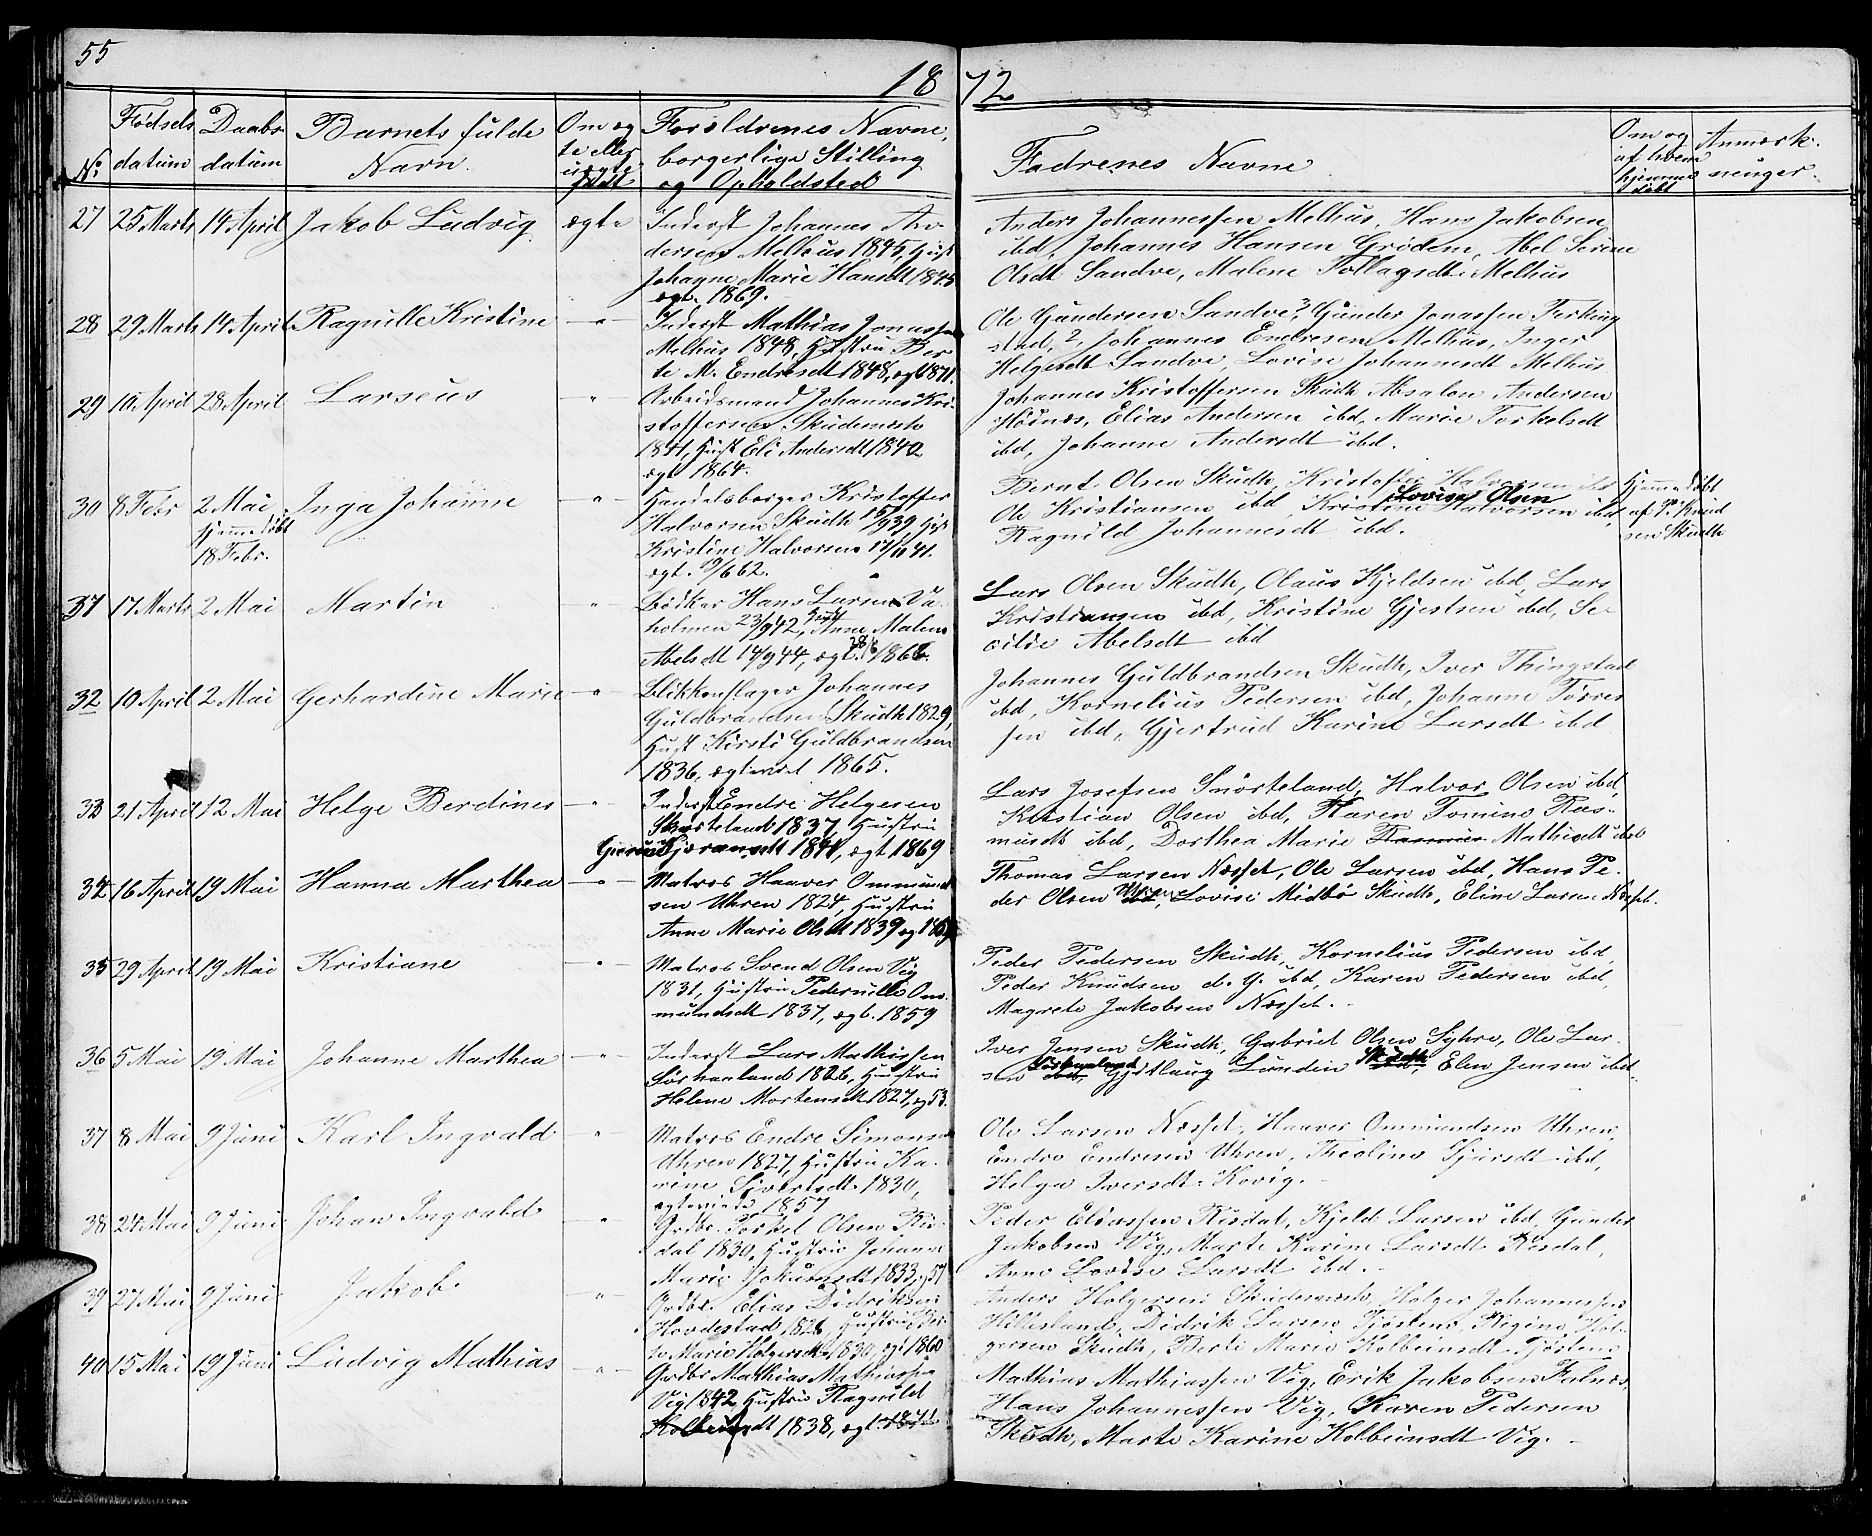 55
18 72
No
Fødsels
datum
Daabs
datum
Barnets fulde
Navn.
Om æg
te eller
uægte
født
Forældrenes Navne,
borgerlige Stilling
og Opholdsted
Fadrenes Navne
Om og
af hvem
hjemme
døbt
Anmærk-
ninger.
27 25 Marts 14 April Jakob Ludvig ægte
Inderst Johannes An-
dersen Melhus 1845, Hust
Johanne Marie Hansdt 1845
ægt. 1869.
Anders Johannessen Melhus, Hans Jakobsen
ibd, Johannes Hansen Grødem, Abel Serine
Olsdt Sandve, Malene Tollagsdt Melhus
28 29 Marts 14 April Ragnille Kristine - " -
Inderst Mathias Jonassen
Melhus 1848, Hustru Ber
te M. Endresdt 1848, ægt 1871.
Ole Gundersen Sandve?, Gunder Jonassen Ferking
stad, 2, Johannes Endresen Melhus, Inger
Helgesdt Sandve, Lovise Johannesdt Melhus
29 10 April 28 April Larseus "
Arbeidsmand Johannes Kri-
stoffersen Skudeneshn
1841, Hust Eli Andersdt 1840
ægt 1864.
Johannes Kristoffersen Skudh Absalon Andersen
Høines, Elias Andersen ibd, Marie Torkelsdt
ibd, Johanne Andersdt ibd.
30 8 Febr 2 Mai Inga Johanne - " -
Hjemmedøbt
18 Febr.
Handelsborger Kristoffer
Halvorsen Skudh 15/9 39 Hust
Kristine Halvorsen 17/11 41.
ægt. 9/6 62.
Bernt Olsen Skudh, Kristoffer Halvorsen ibd
Ole Kristiansen ibd, Kristine Halvorsen ibd
Lovise Olsen
Ragnild Johannesdt ibd.
Hjemmedøbt
af P. Knud
sen Skudh
31 17 Marts 2 Mai Martin "
Bødker Hans Larsen Va-
holmen 23/9 42, Hust Anne Malene
Abelsdt 14/9 44, ægt. 28/6 1866.
Lars Olsen Skudh, Olaus Kjeldsen ibd, Lars
Kristiansen ibd, Kristine Gjertsen ibd, Se-
cilie Abelsdt ibd
32 10 April 2 Mai Gerhardine Marie - " -
Blikkenslager Johannes
Guldbrandsen Skudh 1829,
Hust Kirsti Guldbrandsen
1836, ægteviet 1865.
Johannes Guldbrandsen Skudh, Iver Thingstad
ibd, Kornelius Pedersen ibd, Johanne Tørres
sen ibd, Gjertrud Karine Larsdt ibd
33 21 April 12 Mai Helge Berdines - "
Inderst Endre Helgesen
Snørteland 1837, Hustru
Gjøransdt 1841, ægt 1869
Lars Josefsen Snørteland, Halvor Olsen ibd,
Kristian Olsen ibd, Karen Tomine Ras-
musdt ibd, Dorthea Marie Mathisdt ibd
34 16 April 19 Mai Hanna Marthea - " -
Matros Haaver Ommund
sen Uhren 1824, Hustru
Anne Marie Olsdt 1839 ægt
Thomas Larsen Næsset, Ole Larsen ibd, Hans Pe-
der Olsen Uhren, Lovise Midbø Skudh, Eline Larsen Næsset.
35 29 April 19 Mai Kristiane - " -
Matros Svend Olsen Vig
1831, Hustru Pedernille Om-
mundsdt 1837, ægt. 1859
Peder Pedersen Skudh, Kornelius Pedersen ibd,
Peder Knudsen d. y. ibd, Karen Pedersen ibd,
Magrete Jakobsen Næsset.
36 5 Mai 19 Mai Johanne Marthea - " -
Inderst Lars Mathissen
Sørhanland 1826, Hustru
Helene Mortensdt 1827, ægt 53.
Iver Jensen Skudh, Gabriel Olsen Syhre, Ole Lar-
sen ibd, Sørhanland Gjetlaug Lundin Skudh, Elen Jensen ibd.
37 8 Mai 9 Juni Karl Ingvald "
Matros Endre Simonsen
Uhren 1827, Hustru Ka-
rine Sjvertsdt 1830,
ægteviede 1857
Ole Larsen Næsset, Haaver Ommundsen Uhren,
Endre Endresen Uhren, Theoline Sjursdt ibd,
Helga Iversdt Kovig.
38 24 Mai 9 Juni Johan Ingvald - " -
Grdbr. Torkel Olsen Ris-
dal 1830, Hustru Johanne
Marie Jokumsdt 1833, ægt 57
Peder Eliassen Risdal, Kjeld Larsen ibd, Gunder
Jakobsen Vig, Marte Karine Larsdt Risdal,
Anne Lovise Larsdt ibd.
39 27 Mai 9 Juni Jakob "
Grdbr. Elias Didriksen
Hovdestad 1826, Hustru Ber
te Marie Holgersdt 1830, ægt 1860
Anders Holgersen Skudeneshn, Holger Johannessen
Hillesland, Didrik Larsen Tjøsten, Regine Hol-
gersen Skudh, Berte Marie Kolbeinsdt Tjøsten
40 15 Mai 19 Juni Ludvig Mathias - " -
Grdbr Mathias Mathiassen
Vig 1842 Hustru Ragnild
Kolbeinsdt 1838, ægt. 1871
Mathias Mathiassen Vig, Erik Jakobsen Falnes,
Hans Johannessen Vig, Karen Pedersen
Skudh, Marte Karine Kolbeinsdt Vig.